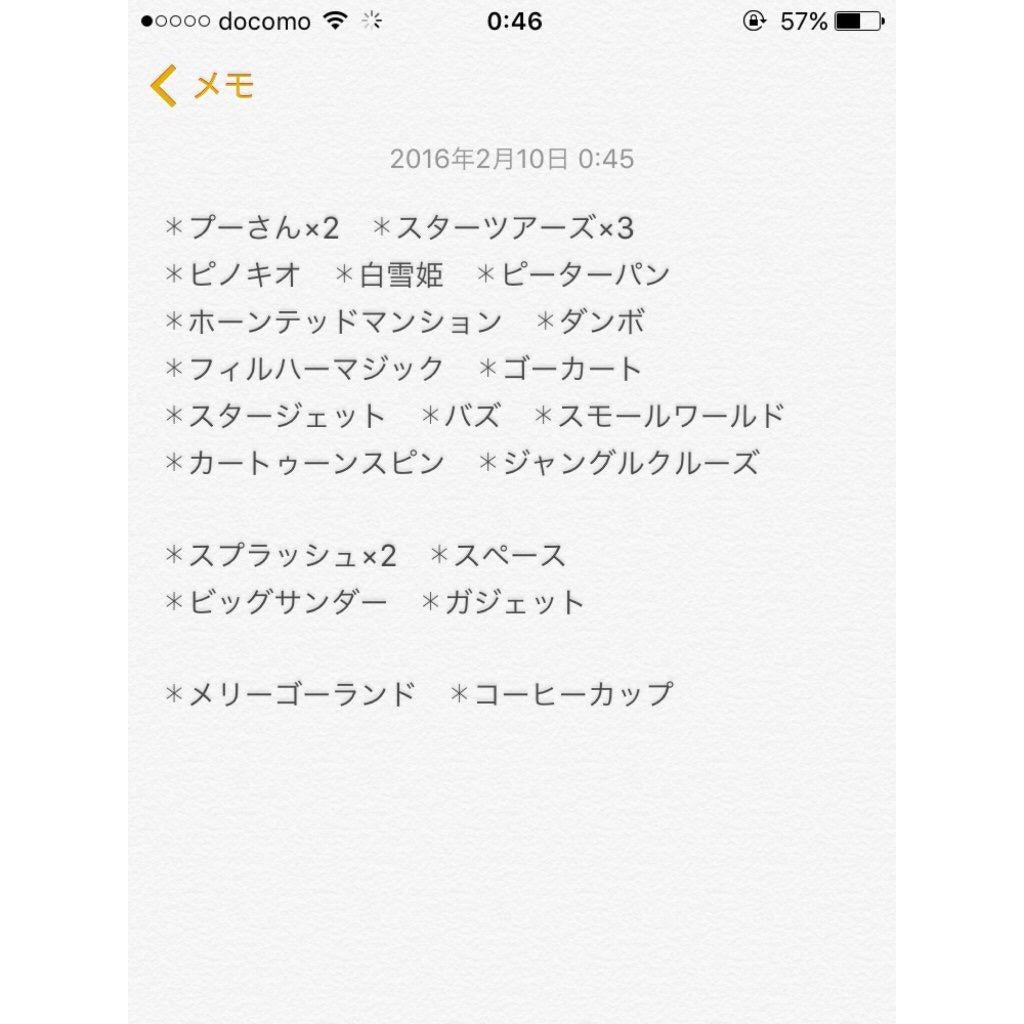 docomo 0:46 57%
メモ
2016年2月10日 0:45
＊プーさん×2　＊スターツアーズ×3
＊ピノキオ　＊白雪姫　＊ピーターパン
＊ホーンテッドマンション　＊ダンボ
＊フィルハーマジック　＊ゴーカート
＊スタージェット　＊バズ　＊スモールワールド
＊カートゥーンスピン　＊ジャングルクルーズ
＊スプラッシュ×2　＊スペース
＊ビッグサンダー　＊ガジェット
＊メリーゴーランド　＊コーヒーカップ